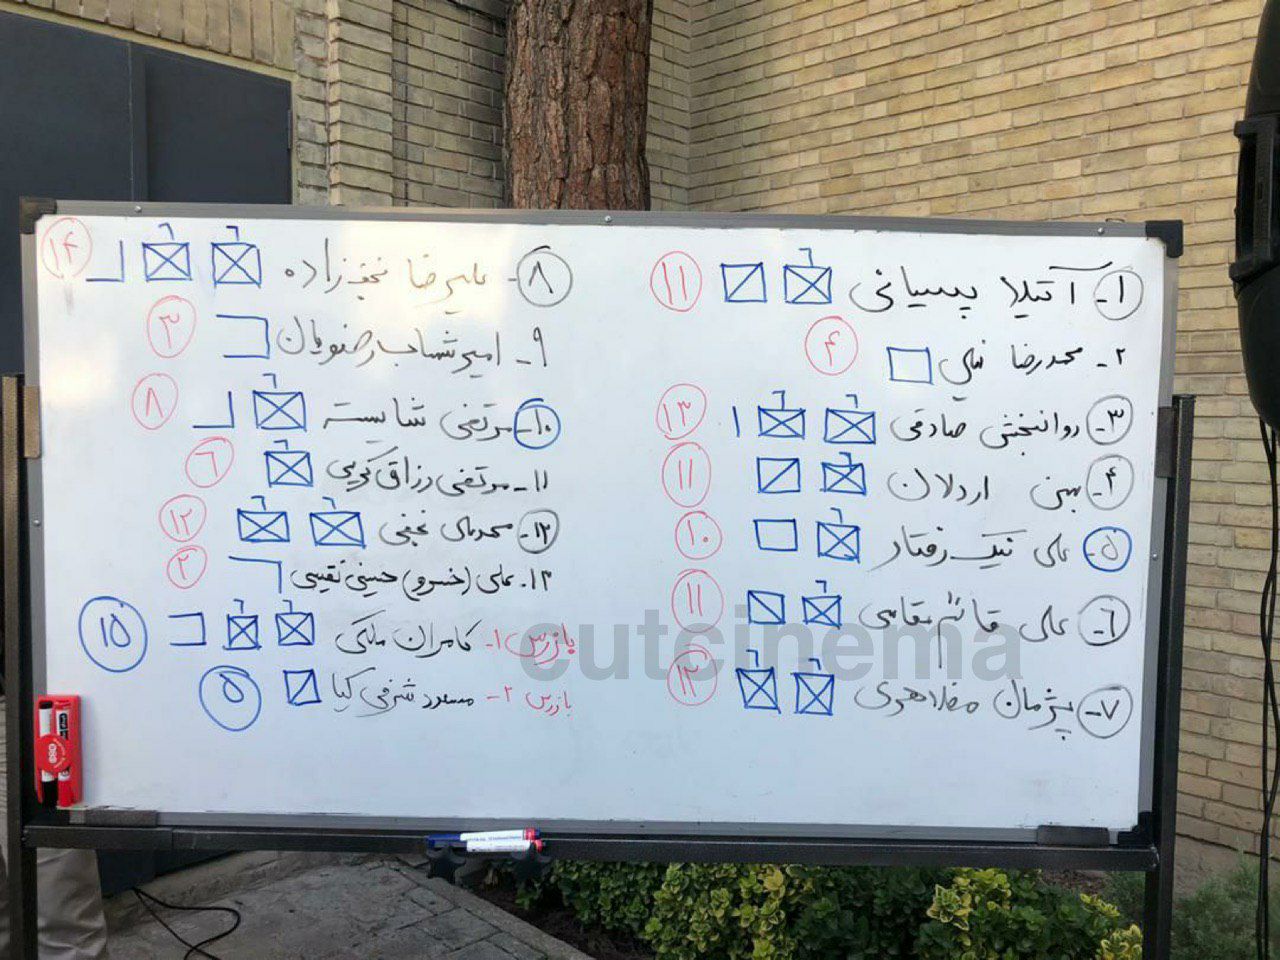 ۱- آتیلا پسیانی ۱۱
۲- محمدرضا ۴
۳- روانبخش صادقی ۱۳
۴- بهمن اردلان ۱۱
۵- علی نیک رفتار ۱۰
۶- علی قائم مقامی ۱۱
۷- پژمان مظاهری ۱۲
۸- علیرضا نجف زاده ۱۴
۹- امیرشهاب رضویان ۳
۱۰- مرتضی شایسته ۸
۱۱- مرتضی رزاق کریمی ۶
۱۲- محمدعلی نجفی ۱۲
۱۳- علی (خسرو) حسینی نقیبی ۲
بازرس ۱- کامران ملکی ۱۵
بازرس ۲- مسعود شرفی کیا ۵
cutcinema